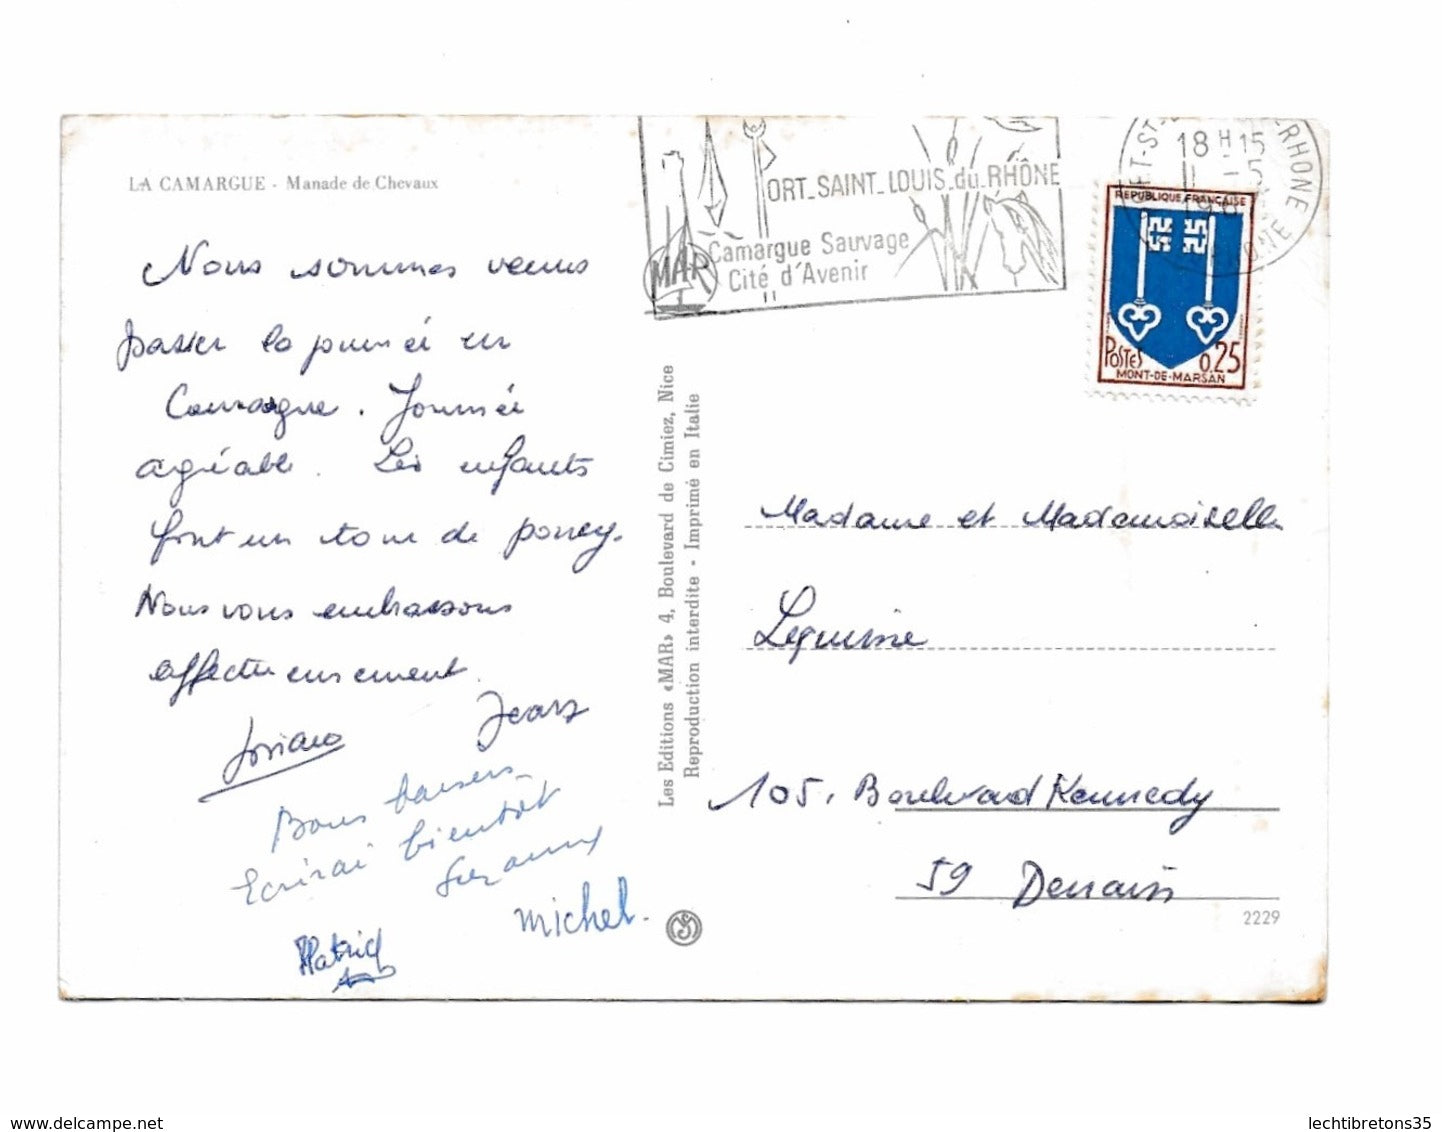 LA CAMARGUE - Manade de Chevaux
Nous sommes venus
passer la journée en
Camargue. Journée
agréable. Les enfants
font un tour de poney.
Nous vous embrassons
affectueusement.
Josiane Jean
Bons baisers
Ecrirai bientôt
Suzanne
michel.
Patrick
Les Editions «MAR» 4, Boulevard de Cimiez, Nice
Reproduction interdite - Imprimé en Italie
ORT_SAINT_LOUIS_du_RHÔNE
Camargue Sauvage
Cité d'Avenir
MAR
18 H 15
11 -5
RHONE
REPUBLIQUE FRANÇAISE
POSTES 0,25
MONT-DE-MARSAN
Madame et Mademoiselle
Lequinne
105, Boulevard Kennedy
59 Denain
2229
lechtibretons35